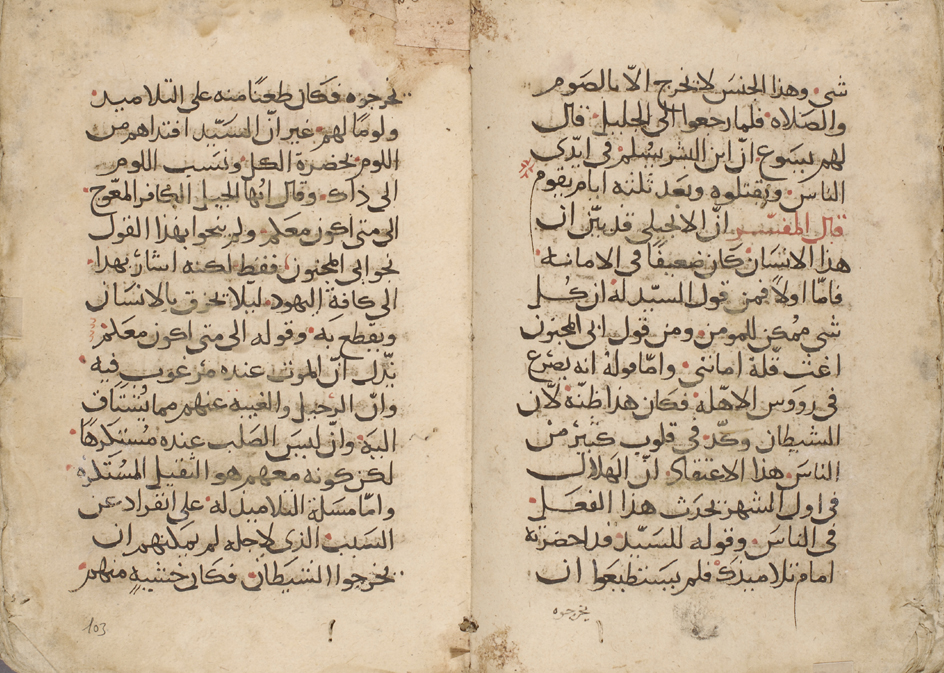 شي وهذا الجنس لا يخرج الا بالصوم
والصلاه فلما رجعوا الى الجليل قال
لهم يسوع ان ابن البشر يسلم في ايدي
الناس ويقتلوه وبعد ثلثه ايام يقوم
قال المفسر ان الانجيلي قد بيّن ان
هذا الانسان كان ضعيفًا في الامانه
فامّا اولاً فمن قول السيّد له ان كُل
شي ممُكن للمومن ومن قول ابي المجنون
اغث قلّة امانتي وامّا قوله انه يصرع
في رووس الاهلّه فكان هذا ظنّه لأن
الشيطان وكّد في قلوب كثير من
الناس هذا الاعتقاد انّ الهلال
في اول الشهر يحدث هذا الفعل
في الناس وقوله للسيّد قد احضرته
امام تلاميذك فلم يستطيعوا ان
يخرجوه
يخرجوه فكان طعنًا منه على التلاميد
ولومًا لهم غير انّ السيّد افتداهم من
اللوم بحضرة الكل ونسب اللوم
الى ذاك وقال ايها الجيل الكافر المعوّج
الى متى اكون معكم ولم ينحوا بهذا القول
نحو ابي المجنون فقط لكنه اشار بهدا
الى كافة اليهود ليلا يخرق بالانسان
ويقطع به وقوله الى متى اكون معكم
يدّل انّ الموت عنده مرغوب فيه
وانّ الرحيل والغيبه عنهم مما يُشتاق
اليه وان ليس الصلب عنده مُستكرهًا
لكن كونه معهم هو الثقيل المُستكره
وامّا مسلة التلاميد له على انفراد عن
السبب الذي لاجله لم يمكنهم ان
يخرجوا الشيطان فكان خشيه منهم
103